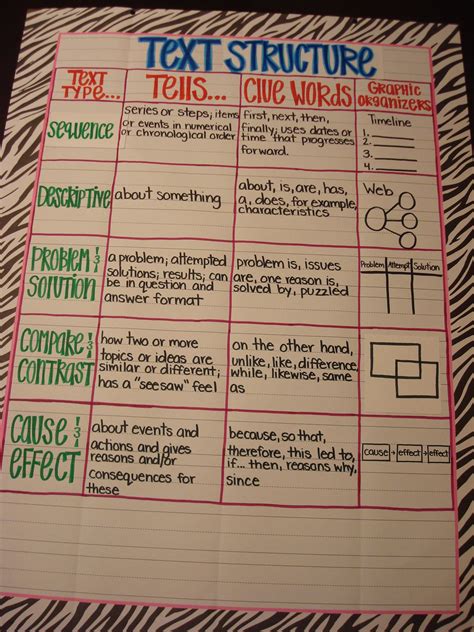 TEXT STRUCTURE
TEXT
TYPE...
TELLS...
CLUE WORDS
GRAPHIC
ORGANIZERS
SEQUENCE
series or steps; items
or events in numerical
or chronological order
first, next, then,
finally; uses dates or
time that progresses
forward.
Timeline
1.
2.
3.
4.
DESCRIPTIVE
about something
about, is, are, has,
a, does, for example,
characteristics
Web
PROBLEM &
SOLUTION
a problem; attempted
solutions; results; can
be in question and
answer format
problem is, issues
are, one reason is,
solved by, puzzled
Problem Attempt Solution
COMPARE &
CONTRAST
how two or more
topics or ideas are
similar or different;
has a "seesaw" feel
on the other hand,
unlike, like, difference,
while, likewise, same
as
CAUSE &
EFFECT
about events and
actions and gives
reasons and/or
consequences for
these
because, so that,
therefore, this led to,
if... then, reasons why,
since
cause → effect → effect